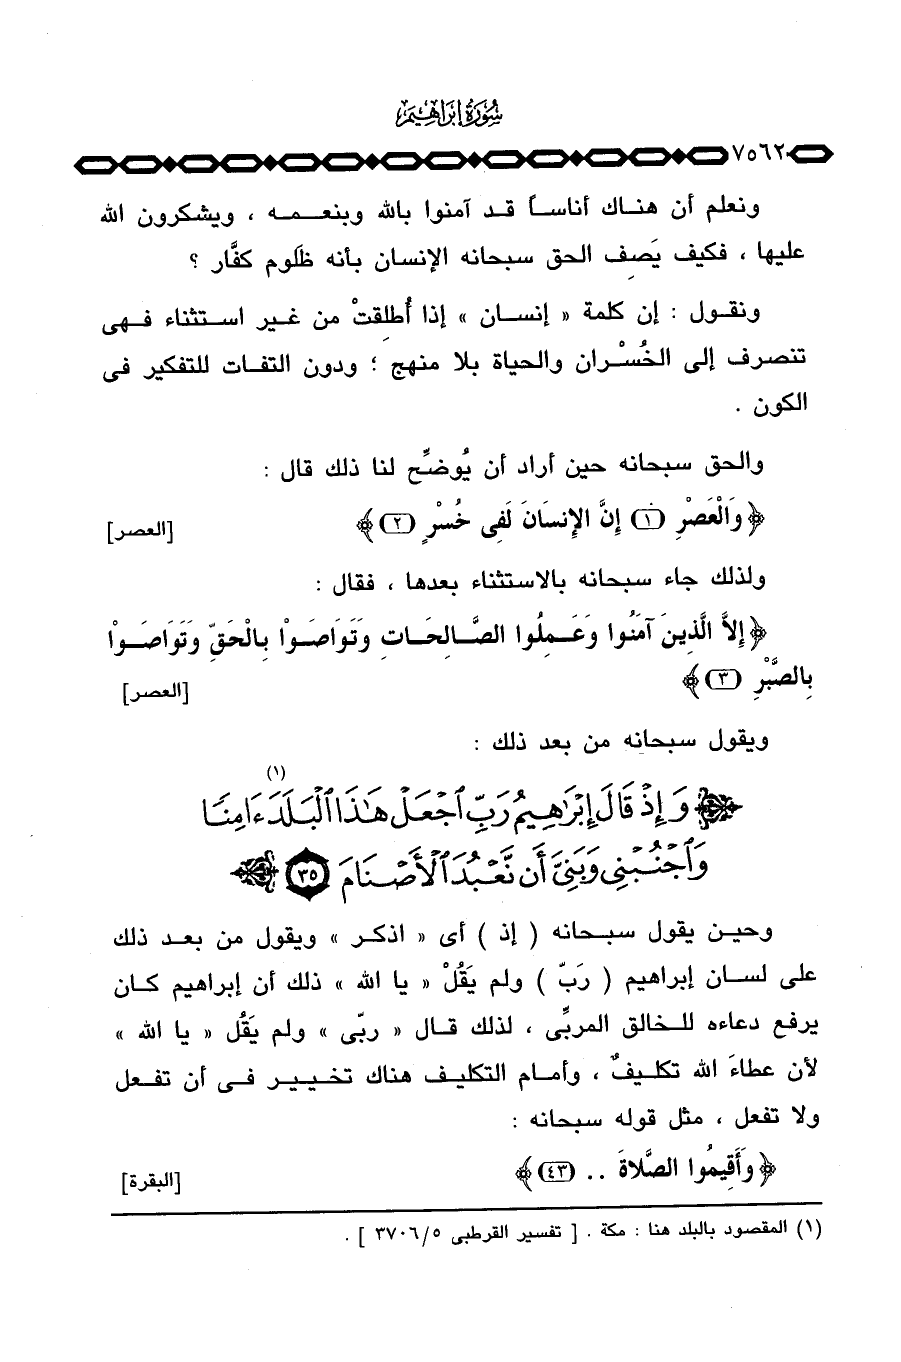 سُورَةُ إِبْرَاهِيم
٧٥٦٢
ونعلم أن هناك أناساً قد آمنوا بالله وبنعمه ، ويشكرون الله
عليها ، فكيف يَصِف الحق سبحانه الإنسان بأنه ظَلوم كفَّار ؟
ونقول : إن كلمة « إنسان » إذا أُطلِقتْ من غير استثناء فهى
تنصرف إلى الخُسْران والحياة بلا منهج ؛ ودون التفات للتفكير فى
الكون .
والحق سبحانه حين أراد أن يُوضِّح لنا ذلك قال :
﴿ وَالْعَصْرِ (١) إِنَّ الإِنسَانَ لَفِى خُسْرٍ (٢) ﴾ [العصر]
ولذلك جاء سبحانه بالاستثناء بعدها ، فقال :
﴿ إِلاَّ الَّذِينَ آمَنُوا وَعَمِلُوا الصَّالِحَاتِ وَتَوَاصَوْا بِالْحَقِّ وَتَوَاصَوْا
بِالصَّبْرِ (٣) ﴾ [العصر]
ويقول سبحانه من بعد ذلك :
﴿ وَإِذْ قَالَ إِبْرَٰهِيمُ رَبِّ ٱجْعَلْ هَٰذَا ٱلْبَلَدَ(١) ءَامِنًا
وَٱجْنُبْنِى وَبَنِىَّ أَن نَّعْبُدَ ٱلْأَصْنَامَ ٣٥ ﴾
وحين يقول سبحانه ( إذ ) أى « اذكر » ويقول من بعد ذلك
على لسان إبراهيم ( رَبِّ ) ولم يَقُلْ « يا الله » ذلك أن إبراهيم كان
يرفع دعاءه للخالق المربِّى ، لذلك قال « ربِّى » ولم يَقُل « يا الله »
لأن عطاءَ الله تكليفٌ ، وأمام التكليف هناك تخيير فى أن تفعل
ولا تفعل ، مثل قوله سبحانه :
﴿ وَأَقِيمُوا الصَّلاةَ .. (٤٣) ﴾ [البقرة]
(١) المقصود بالبلد هنا : مكة . [ تفسير القرطبى ٣٧٠٦/٥ ] .